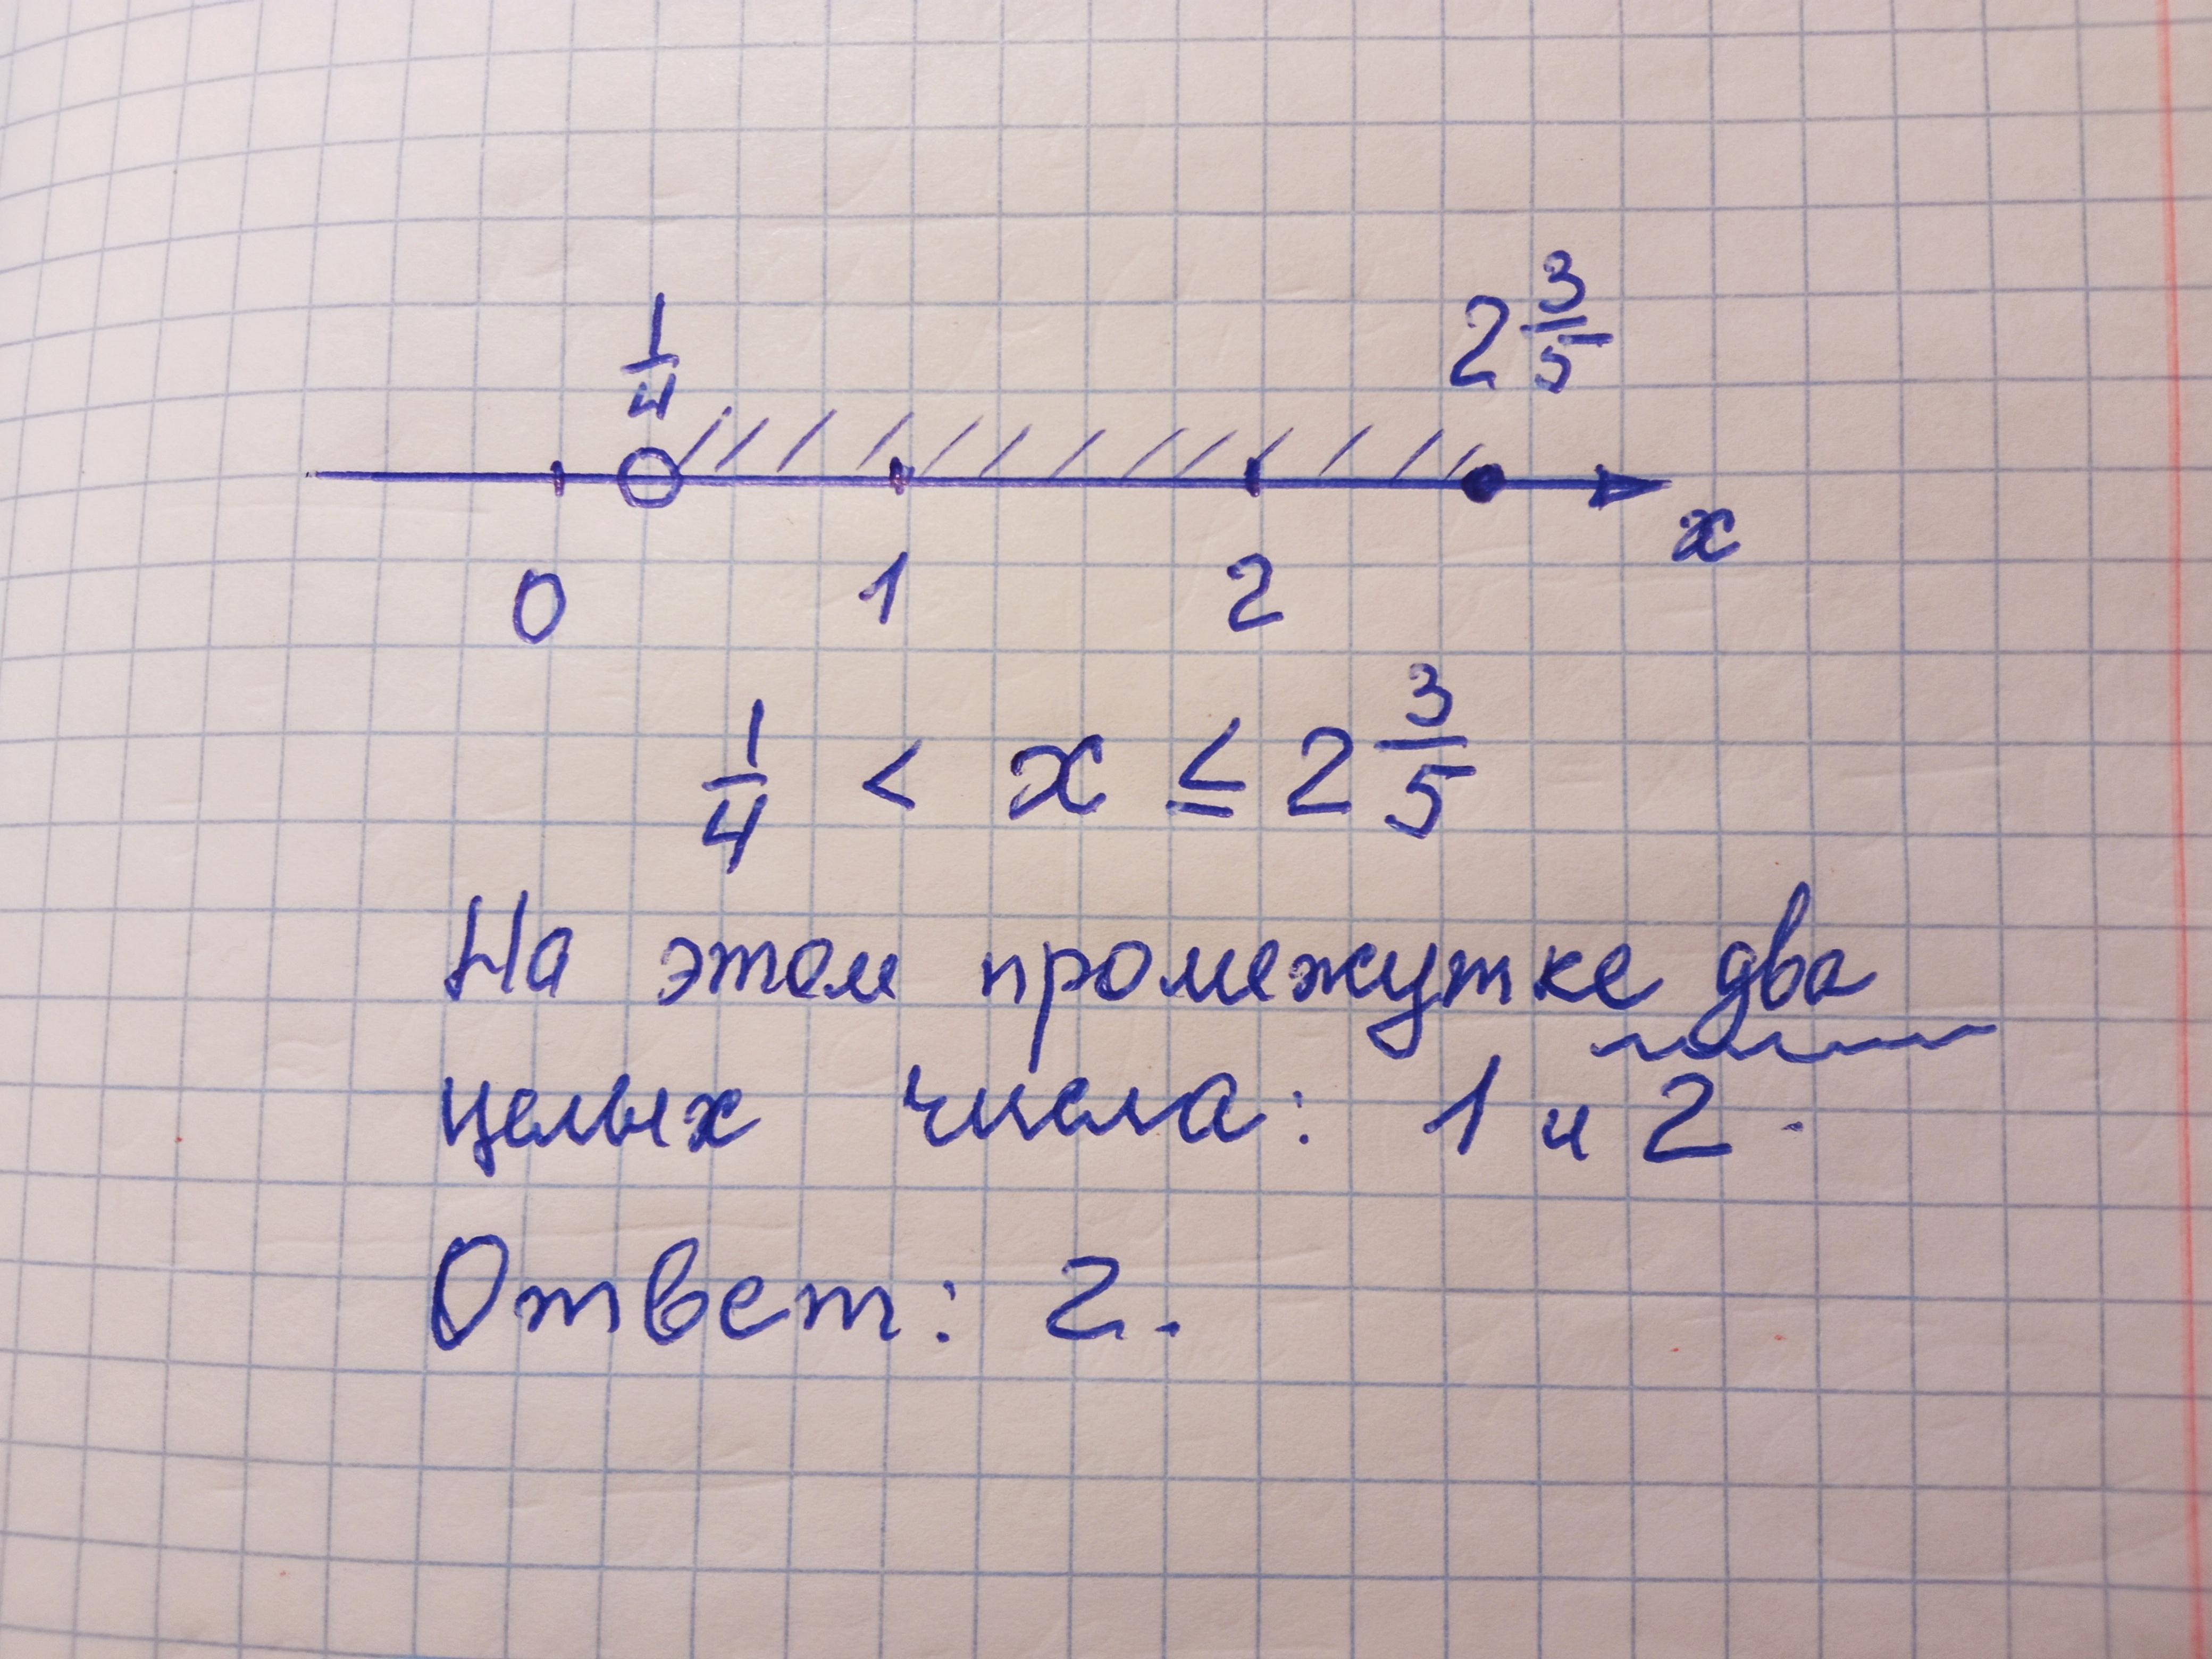 1/4 2 3/5
x
0 1 2
1/4 < x ≤ 2 3/5
На этом промежутке два
целых числа: 1 и 2.
Ответ: 2.